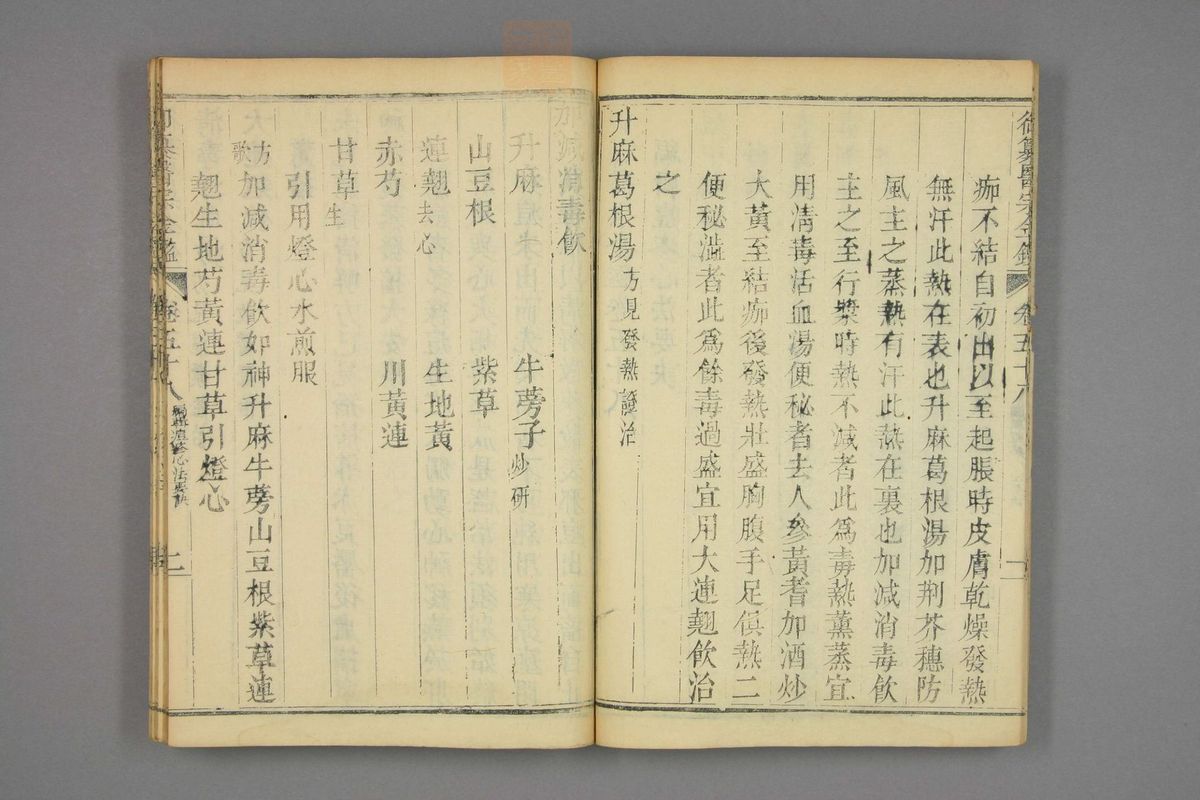 御纂醫宗金鑑 卷五十八
痂不結自初出以至起脹時皮膚乾燥發熱
無汗此熱在表也升麻葛根湯加荆芥穗防
風主之蒸熱有汗此熱在裏也加減消毒飲
主之至行漿時熱不減者此爲毒熱薰蒸宜
用清毒活血湯便秘者去人參黃耆加酒炒
大黃至結痂後發熱壯盛胸腹手足俱熱二
便秘澁者此爲餘毒過盛宜用大連翹飲治
之
升麻葛根湯 方見發熱證治
加減消毒飲
升麻 牛蒡子 炒研
山豆根 紫草
連翹 去心 生地黃
赤芍 川黃連
甘草 生
引用燈心水煎服
方歌 加減消毒飲如神升麻牛蒡山豆根紫草連
翹生地芍黃連甘草引燈心
御纂醫宗金鑑 卷五十八 編輯痘疹心法要訣 二